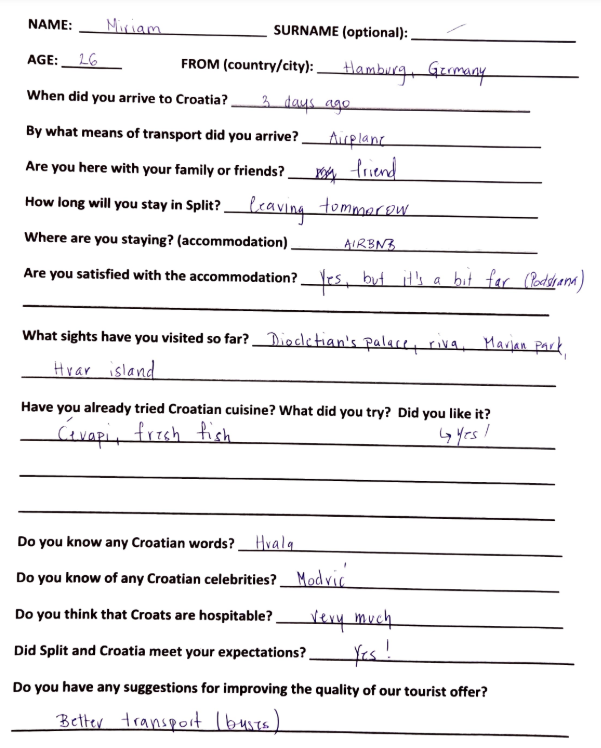 NAME: Miriam SURNAME (optional): /
AGE: 26 FROM (country/city): Hamburg, Germany
When did you arrive to Croatia? 3 days ago
By what means of transport did you arrive? Airplane
Are you here with your family or friends? friend
How long will you stay in Split? leaving tommorow
Where are you staying? (accommodation) AIRBNB
Are you satisfied with the accommodation? Yes, but it's a bit far (Podstrana)
What sights have you visited so far? Diocletian's palace, riva, Marjan park,
Hvar island
Have you already tried Croatian cuisine? What did you try? Did you like it?
Ćevapi, fresh fish ↳ Yes!
Do you know any Croatian words? Hvala
Do you know of any Croatian celebrities? Modrić
Do you think that Croats are hospitable? Very much
Did Split and Croatia meet your expectations? Yes!
Do you have any suggestions for improving the quality of our tourist offer?
Better transport (buses)